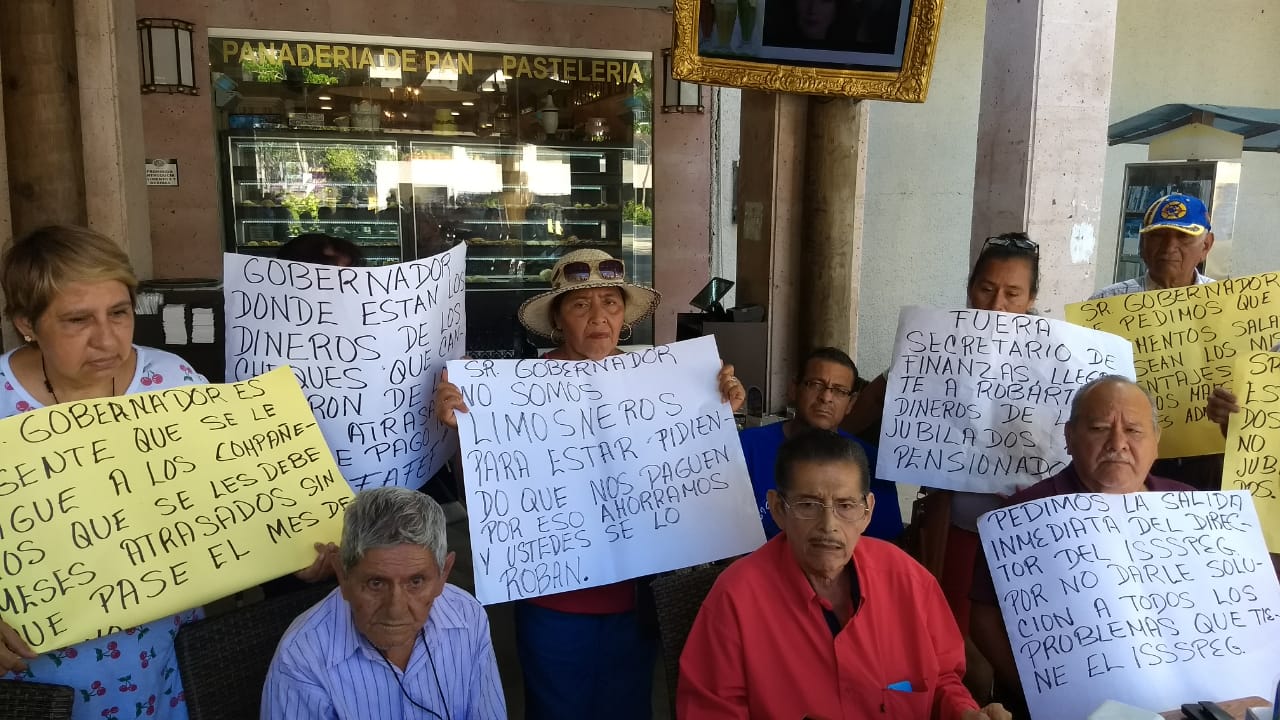 PANADERIA DE PAN PASTELERIA
PROHIBIDO
INTRODUCIR
ALIMENTOS Y
GOBERNADOR
DONDE ESTAN LOS
DINEROS DE LOS
CHEQUES QUE
RON DE
ATRASA
E PAGO
R. GOBERNADOR ES
SENTE QUE SE LE
AGUE A LOS COMPAÑE-
ROS QUE SE LES DEBE
MESES ATRASADOS SIN
QUE PASE EL MES DE
SR. GOBERNADOR
NO SOMOS
LIMOSNEROS
PARA ESTAR PIDIEN-
DO QUE NOS PAGUEN
POR ESO AHORRAMOS
Y USTEDES SE LO
ROBAN.
FUERA
SECRETARIO DE
FINANZAS LLEGAS
TE A ROBARTE
DINEROS DE L
JUBILADOS
PENSIONADO
GOBERNADOR
E PEDIMOS QUE
MENTOS SALA
SEAN LOS MI
NTAJES
SR
ES
DOS
NO
JUB
DOS.
PEDIMOS LA SALIDA
INMEDIATA DEL DIREC-
TOR DEL ISSSPEG.
POR NO DARLE SOLU-
CION A TODOS LOS
PROBLEMAS QUE TIE-
NE EL ISSSPEG.